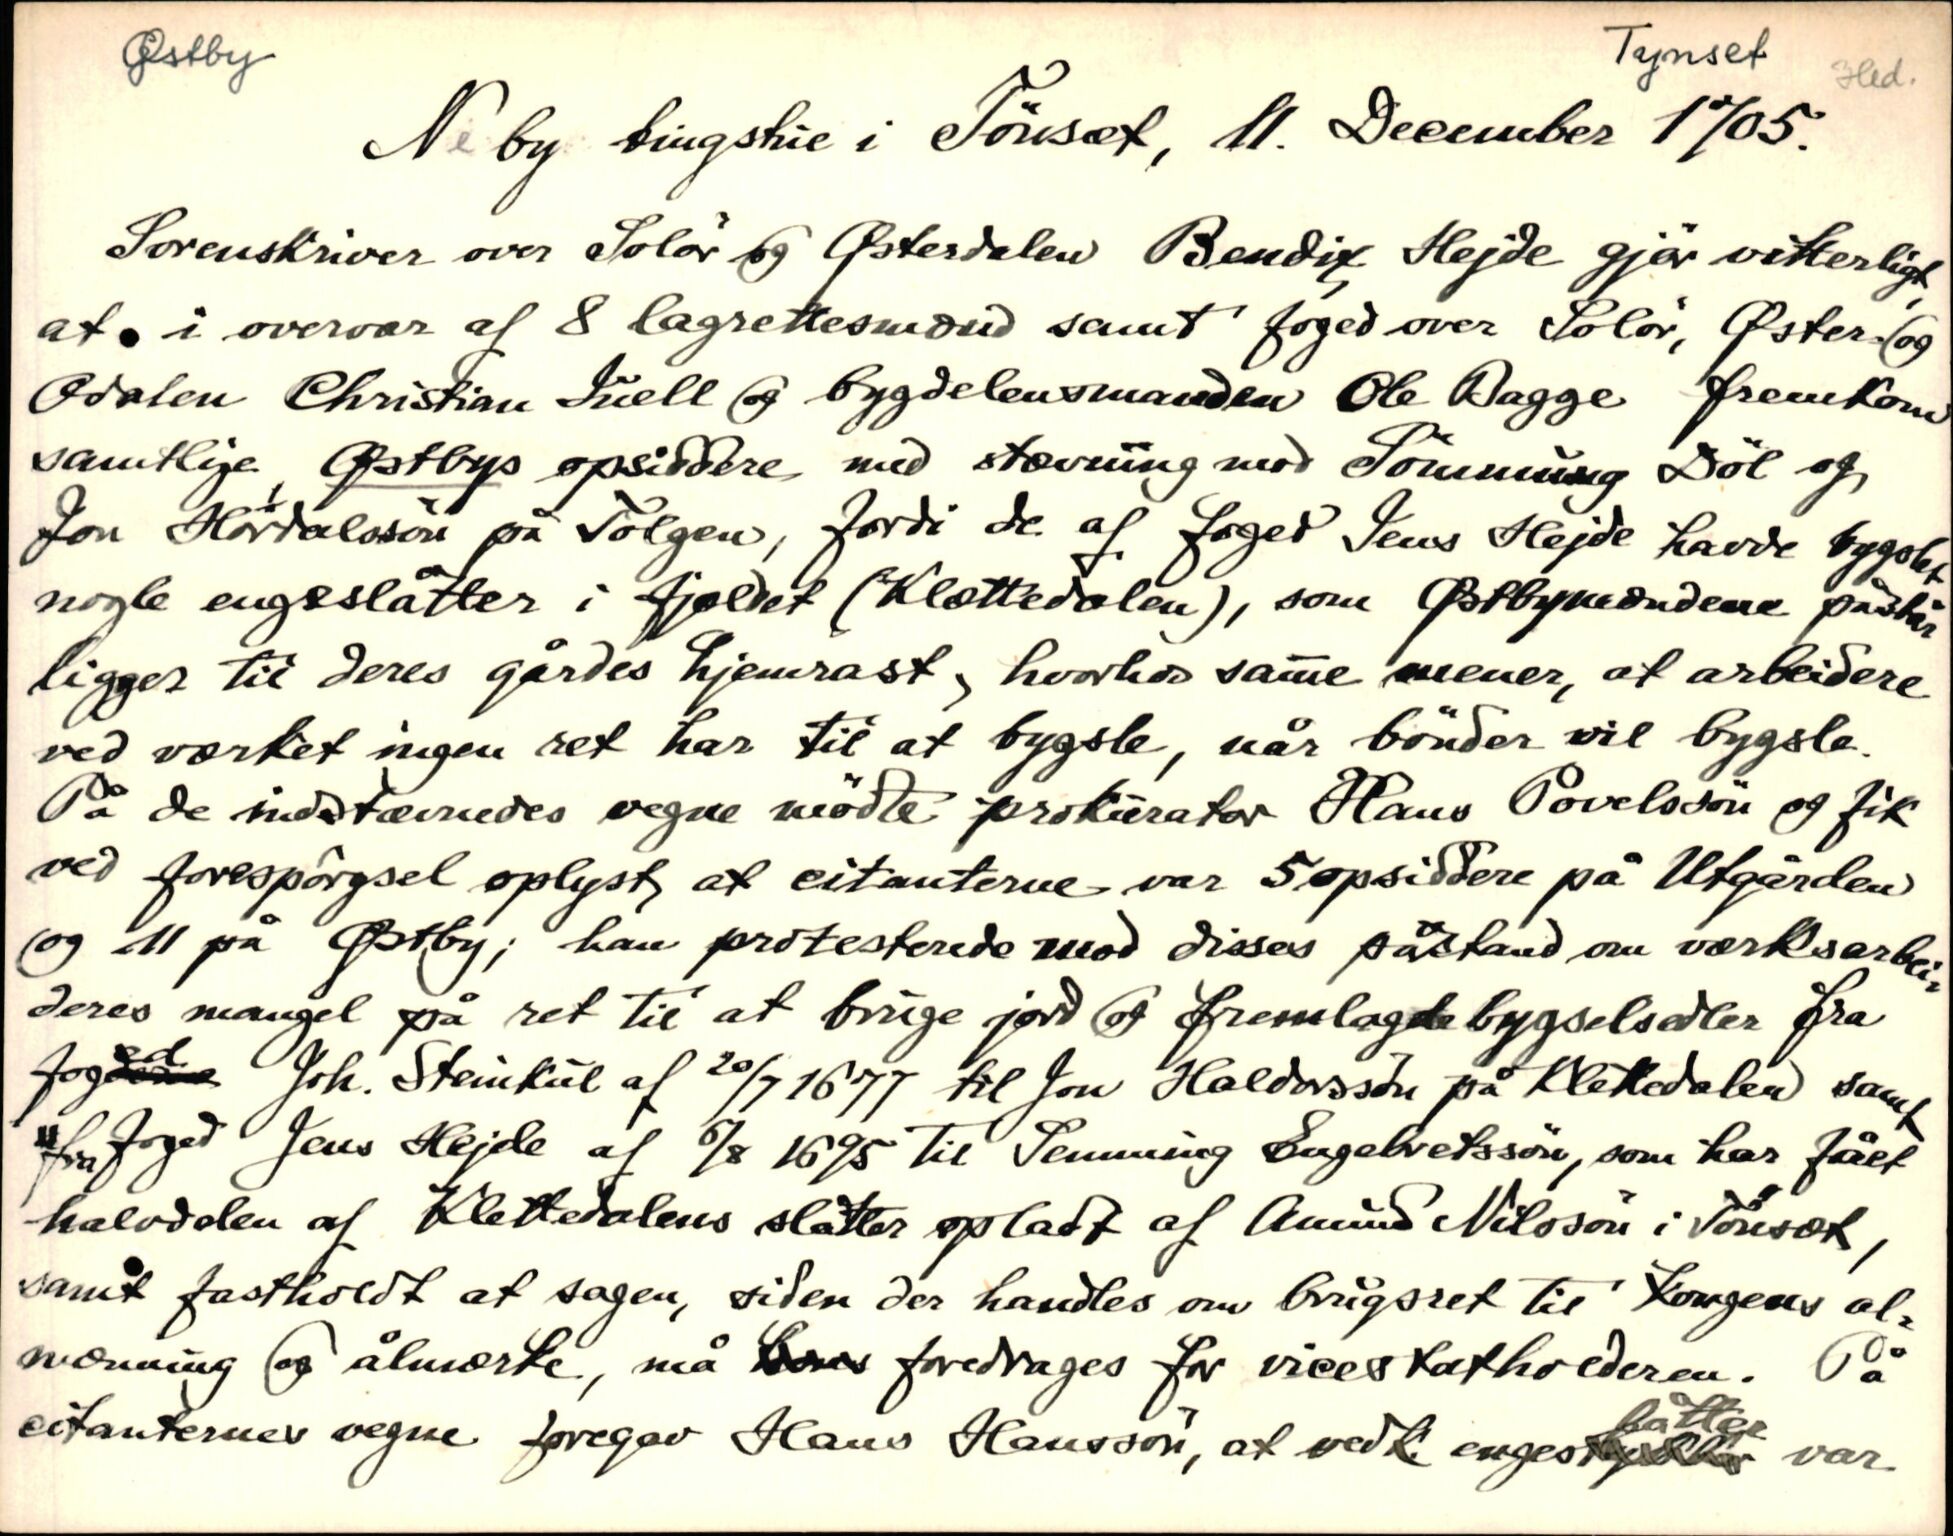 Østby
Tynset
Hed.
Neby tingstue i Tönset, 11. December 1705.
Sorenskriver over Solör og Østerdalen Bendix Hejde gjör vitterligt,
at i overvær af 8 lagrettesmænd samt foged over Solör, Øster- og
Odalen Christian Juell og bygdelensmanden Ole Bagge fremkom
samtlige Østbys opsiddere med stævning mod Tömmüng Döl og
Jon Hördalssön på Tolgen, fordi de af foged Jens Hejde havde bygslet
nogle engesslåtter i fjeldet (Klettedalen), som Østbymændene påstår
ligger til deres gårdes hjemrast, hvorhos samme mener, at arbeidere
ved værket ingen ret har til at bygsle, når bönder vil bygsle.
På de indstævnedes vegne mödte prokürator Hans Povelssön og fik
ved forespörgsel oplyst, at citanterne var 5 opsiddere på Utgården
og 11 på Østby; han protesterede mod disses påstand om værksarbei-
deres mangel på ret til at brüge jord og fremlagde bygselsedler fra
foged Joh. Steinkül af 20/7 1677 til Jon Haldorssön på Klettedalen samt
fra foged Jens Hejde af 6/8 1695 til Temming Engebretssön, som har fået
halvdelen af Klettedalens slåtter opladt af Amünd Nilssön i Tönset,
samt fastholdt at sagen, siden der handles om brügsret til kongens al-
menning og ålmerke, må foredrages for vicestatholderen. På
citanternes vegne foregav Hans Hanssön, at vedk. engeslåtter var